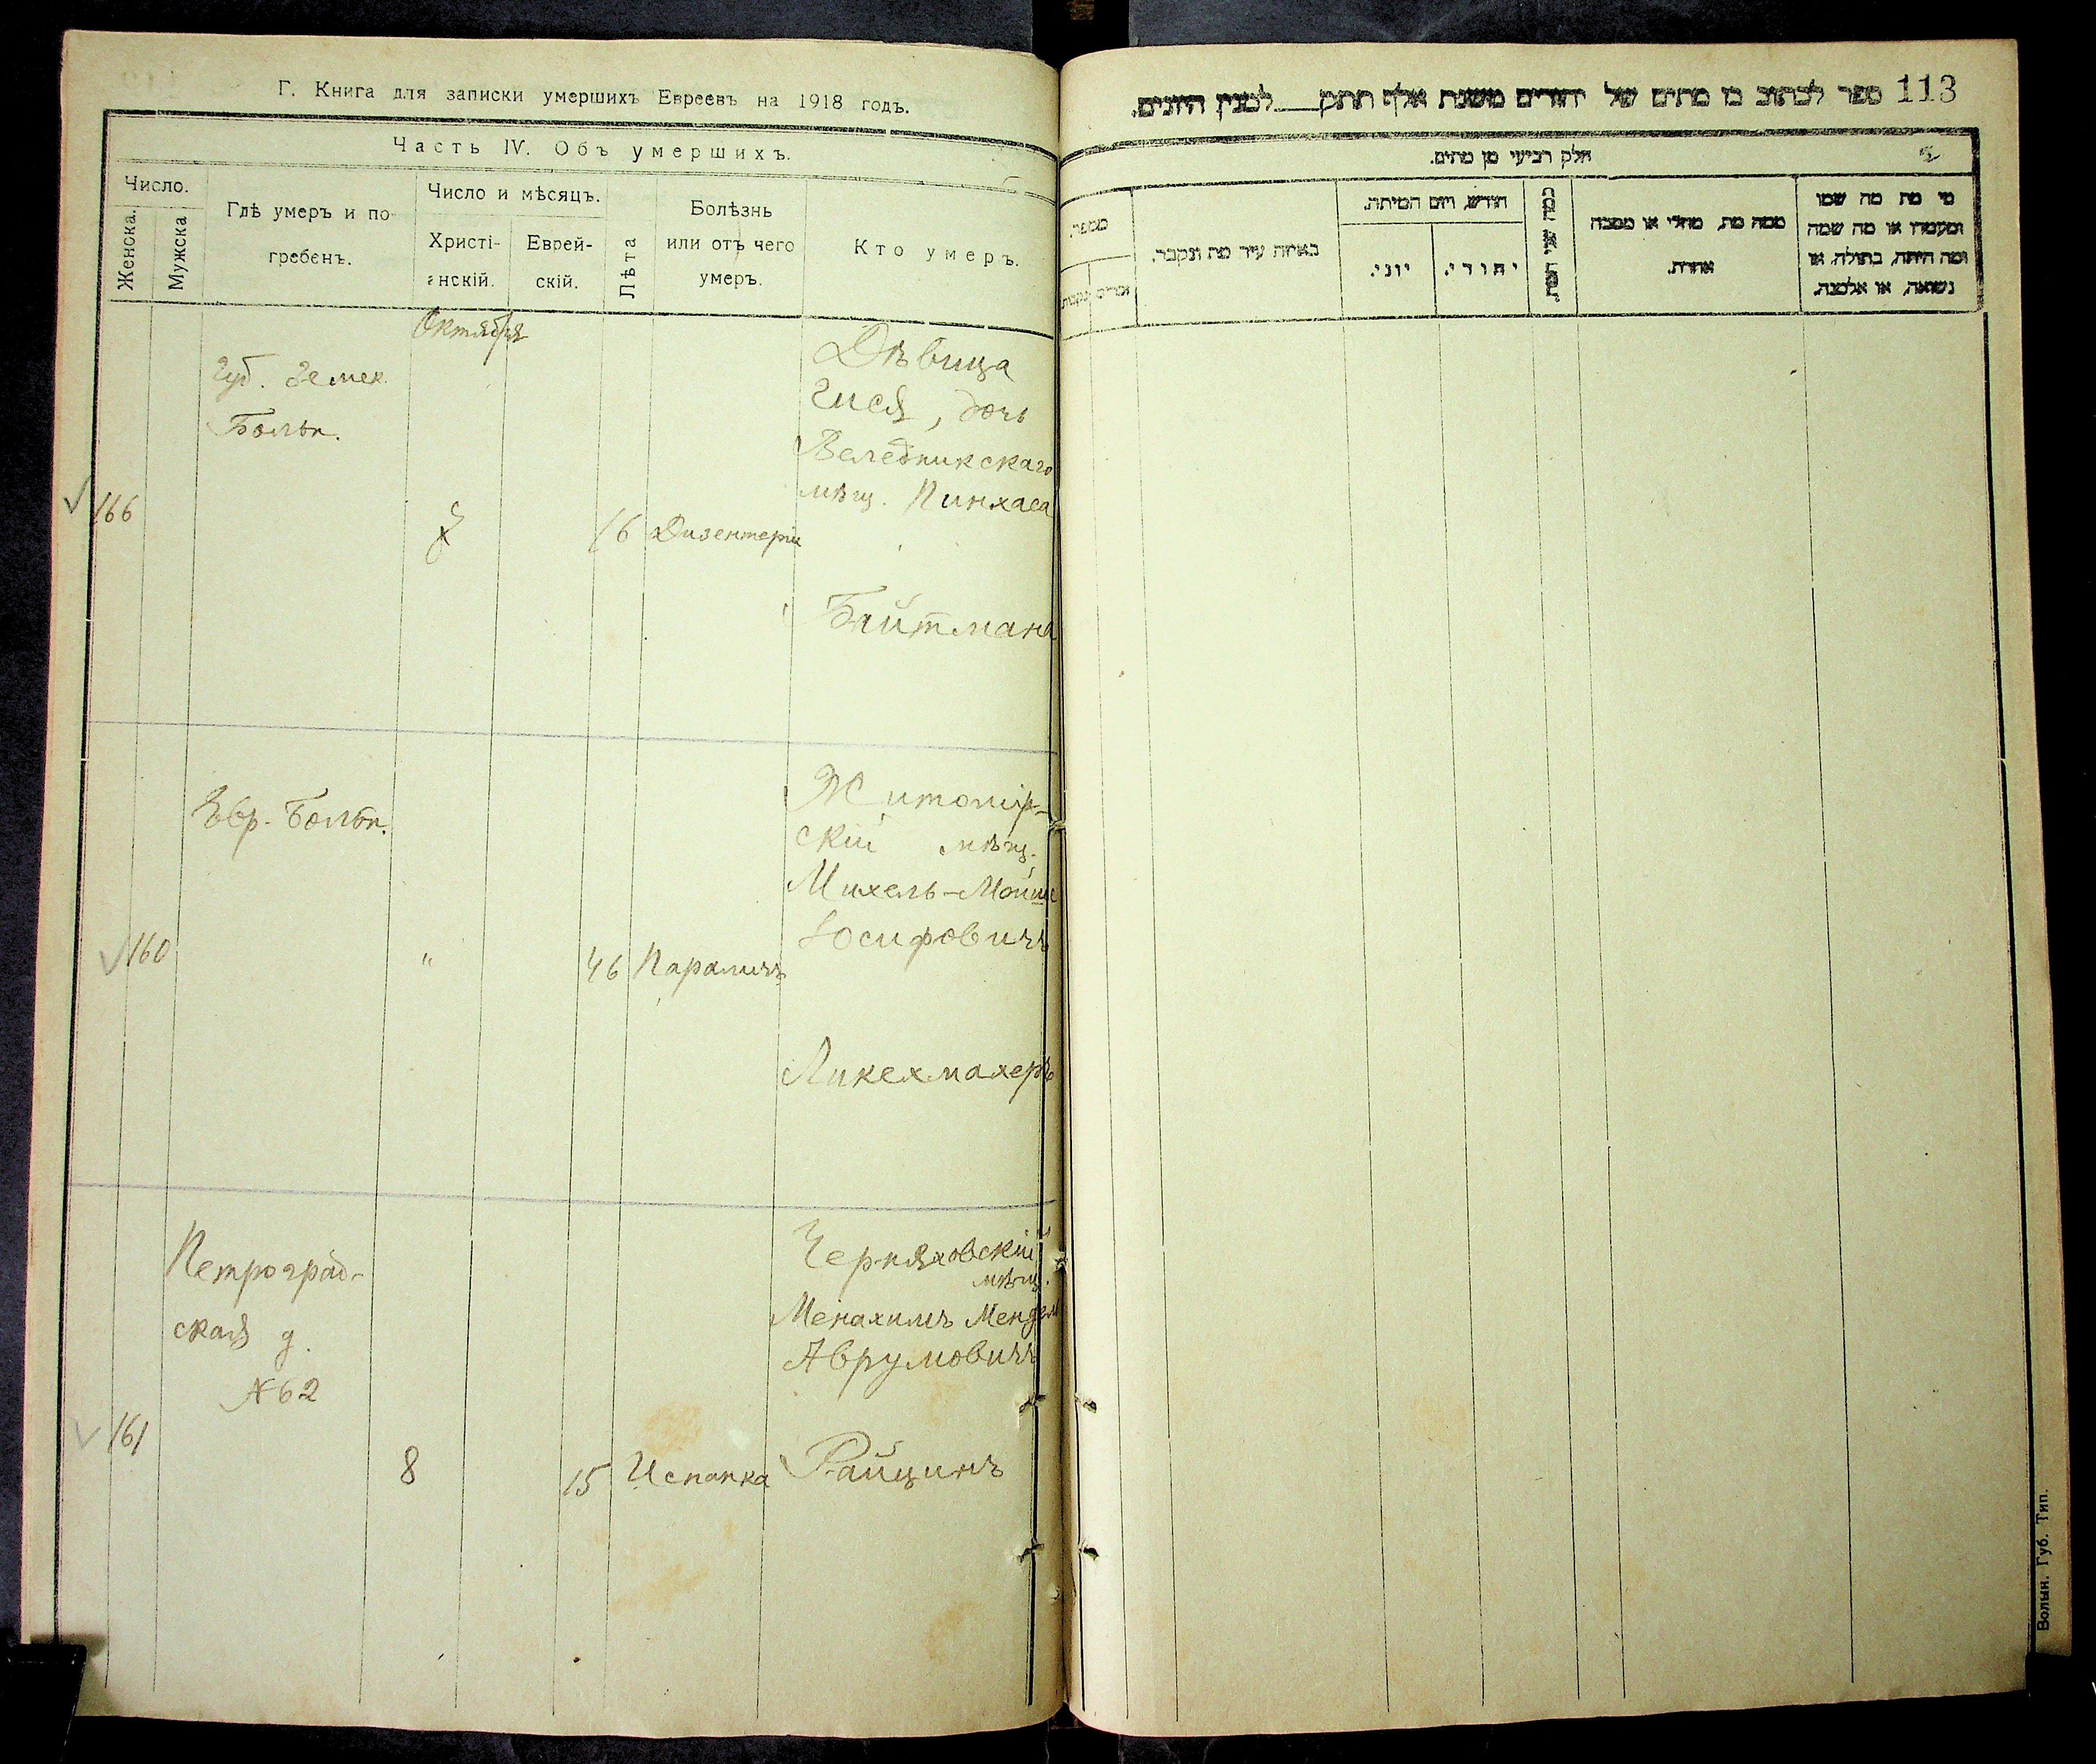 Г. Книга для записки умершихъ Евреевъ на 1918 годъ.
Часть IV. Объ умершихъ.
Число.
Женска.
Мужска
Гдѣ умеръ и по-
гребенъ.
Число и мѣсяцъ.
Христі-
анскій.
Еврей-
скій.
Лѣта
Болѣзнь
или отъ чего
умеръ.
Кто умеръ.
Октября
166
Губ. Земск.
Больн.
16
Дизентерія
Дѣвица
Гися, дочь
Веледникскаго
мѣщ. Пинхаса
Байтмана
160
Евр. Больн.
"
46
Параличъ
Житомір-
скій мѣщ.
Михель-Мойше
Іосифовичъ
Ликехмахеръ
161
Петроград-
ская д.
№62
8
15
Испанка
Черняховскій
мѣщ.
Менахимъ Мендель
Аврумовичъ
Райцинъ
113
ספר לכתוב בו מתים של יהודים משנת אלף תתק___למנין היונים.
חלק רביעי מן מתים.
מספר.
זכרים
נקבות
באיזה עיר מת ונקבר.
חודש, ויום המיתה.
יוני.
יהודי.
ממה מת, מחלי או מסבה
אחרת.
מי מת מה שמו
ומעמדו או מה שמה
ומה היתה, בתולה, או
נשואה, או אלמנה.
Волын. Губ. Тип.